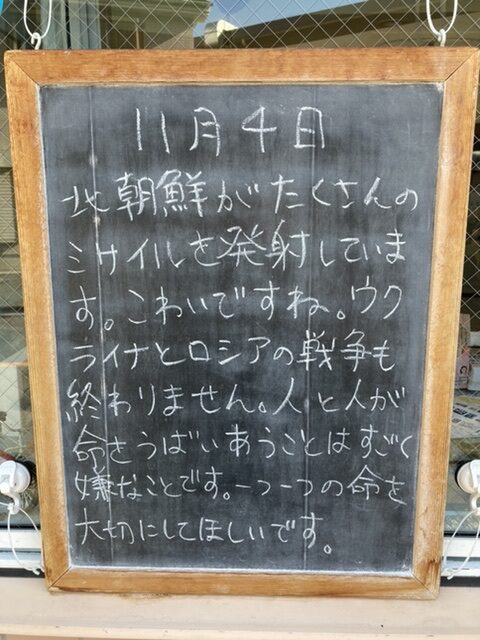 11月4日
北朝鮮がたくさんの
ミサイルを発射していま
す。こわいですね。ウク
ライナとロシアの戦争も
終わりません。人と人が
命をうばいあうことはすごく
嫌なことです。一つ一つの命を
大切にしてほしいです。